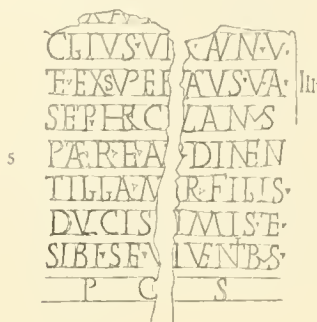 CLIVS·VI ·AVN·V·
TE·EXSVPER AVS·VA· III·
SEP·HRC LAN·S
5 PÆ·R·E·A DINEN
TILLAM R·FILIS·
DVLCIS IMIS·E·
SIBI·SE·V IVENTB·S·
P C S